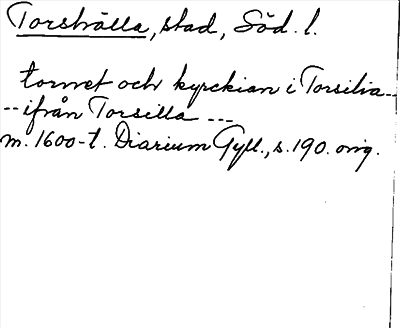 Torshälla, stad, Söd. l.
tornet och kyrckian i Torsilia --
-- ifrån Torsilla ---
m. 1600-t. Diarium Gyll., s. 190. orig.